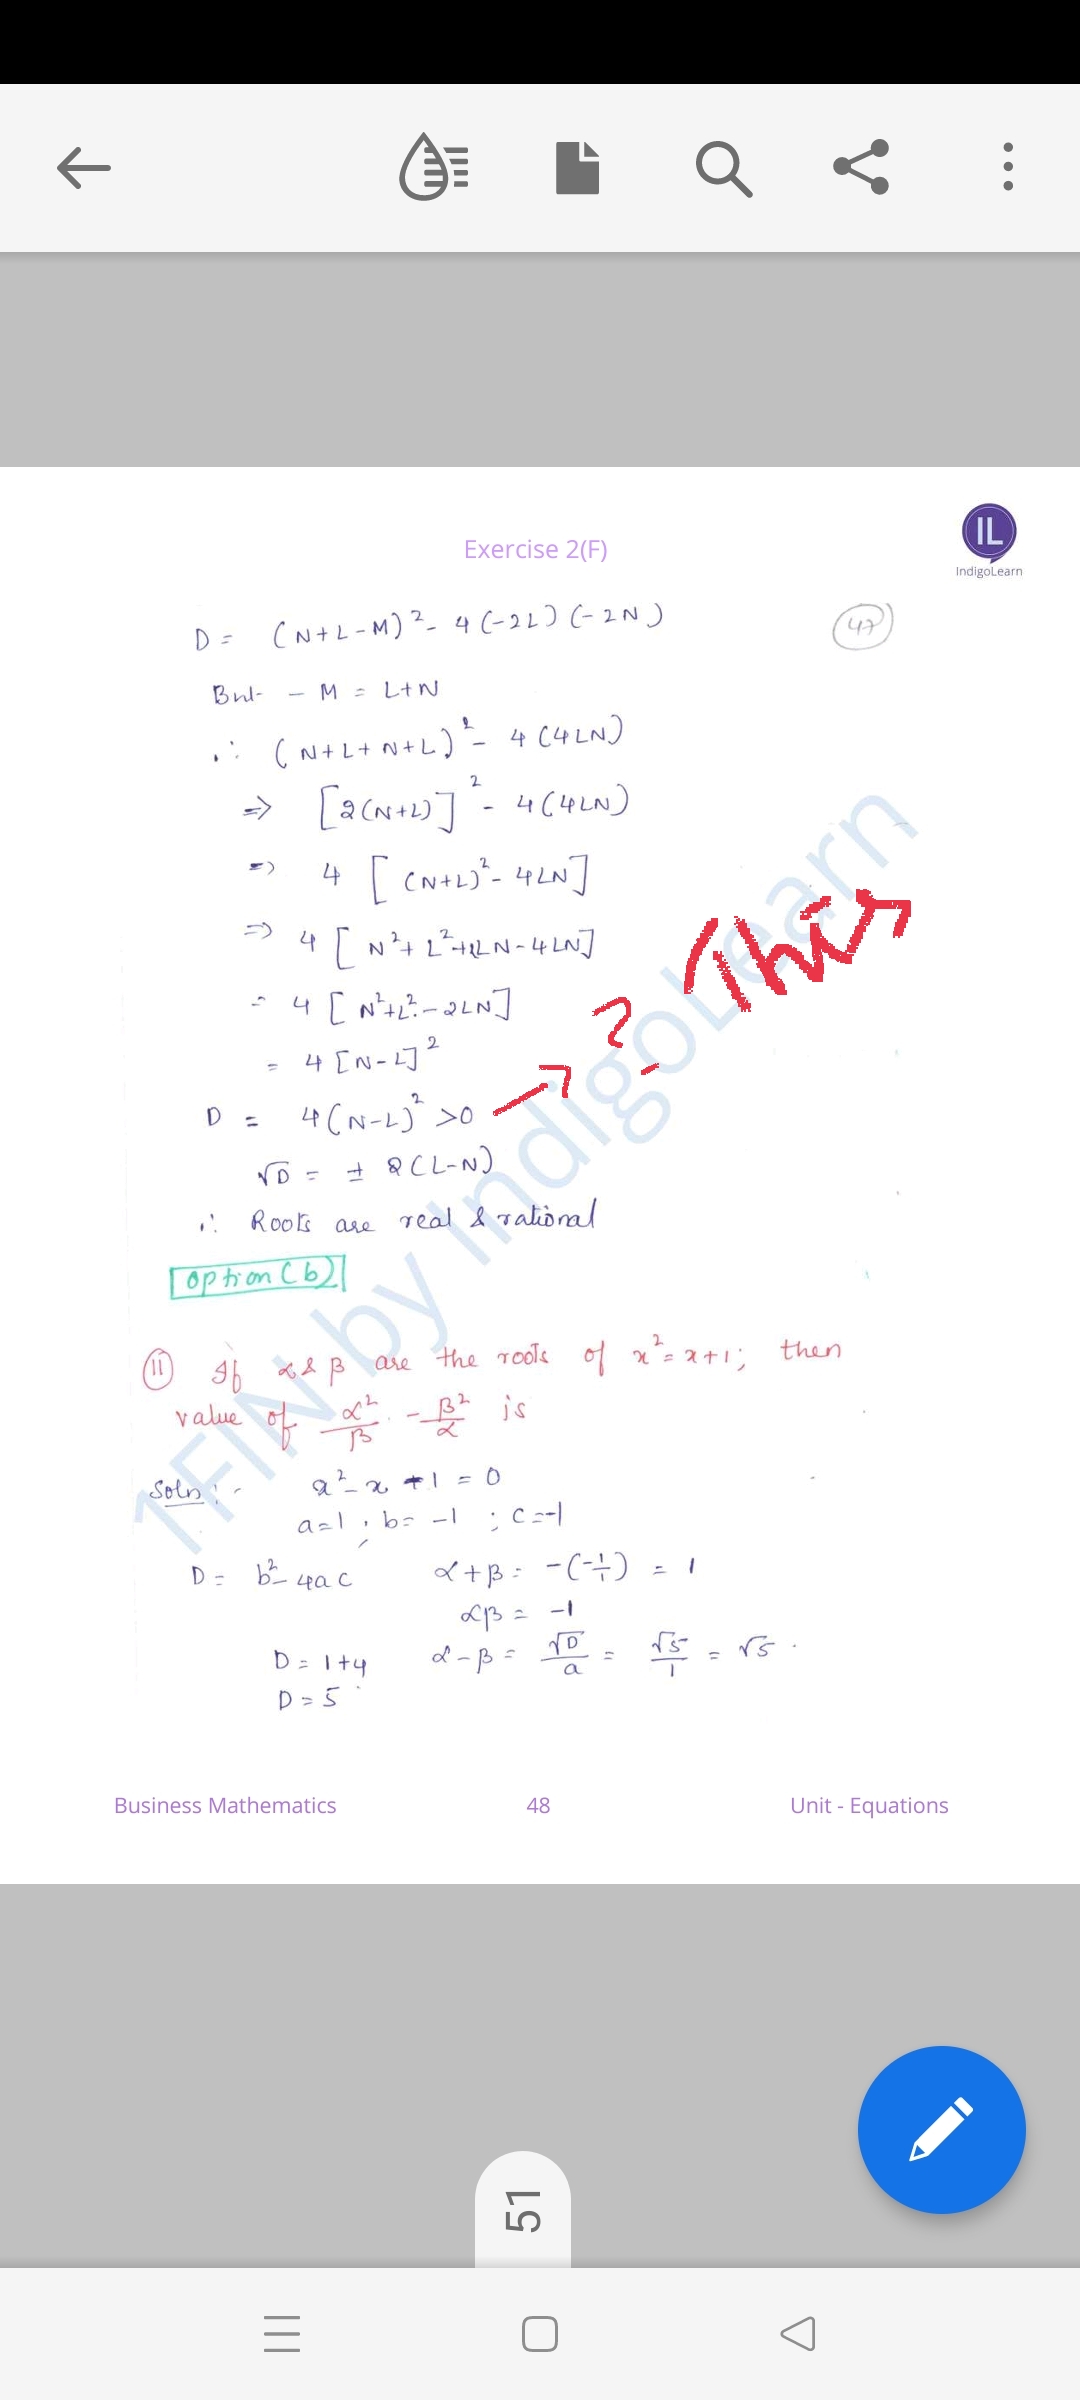 Exercise 2(F)
IL
IndigoLearn
47
D = (N+L-M)² - 4(-2L)(-2N)
But - M = L+N
∴ (N+L+N+L)² - 4(4LN)
⇒ [2(N+L)]² - 4(4LN)
⇒ 4 [(N+L)² - 4LN]
⇒ 4 [N² + L² + 2LN - 4LN]
= 4 [N² + L² - 2LN]
= 4 [N-L]²
D = 4(N-L)² >0 → ? (This
√D = ± 2(L-N)
∴ Roots are real & rational
option (b)
11 If α & β are the roots of x² = x+1; then
value of α²/β - β²/α is
Soln :- x² - x - 1 = 0
a=1 ; b= -1 ; c=-1
D = b² - 4ac α+β = -(-1/1) = 1
αβ = -1
D = 1+4 α-β = √D/a = √5/1 = √5
D = 5
1FIN by IndigoLearn
Business Mathematics 48 Unit - Equations
51